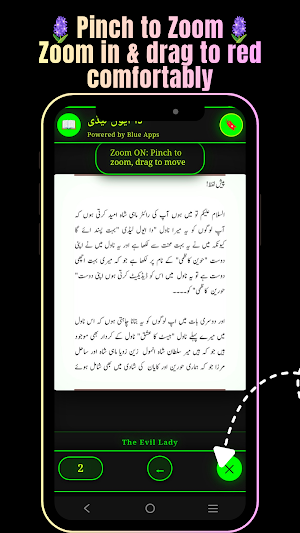 Pinch to Zoom
Zoom in & drag to red
comfortably
دا ایول لیڈی
Powered by Blue Apps
Zoom ON: Pinch to
zoom, drag to move
پیش لفظ!
السلام علیکم تو میں ہوں آپ کی رائٹر ماہی شاہ امید کرتی ہوں کہ
آپ لوگوں کو یہ میرا ناول "دا ایول لیڈی" بہت پسند آئے گا
کیونکہ میں نے یہ بہت محنت سے لکھا ہے اور یہ ناول میں نے اپنی
دوست "حورین کاظمی" کے نام پر لکھا ہے جو کہ میری بہت اچھی
دوست ہے تو یہ ناول میں اس کو ڈیڈیکیٹ کرتی ہوں اپنی دوست"
حورین کاظمی" کو۔۔۔۔
اور دوسری بات میں اپ لوگوں کو یہ بتانا چاہتی ہوں کہ اس ناول
میں میرے پہلے ناول "بیسٹ کا عشق" ناول کے کردار بھی موجود
ہیں جو کہ ہیں میر سلطان شاہ انمول زین زویا ماہی شاہ اور ساحل
مرزا جو کہ ہماری حورین اور کایان کی شادی میں بھی شامل ہوئے
The Evil Lady
2